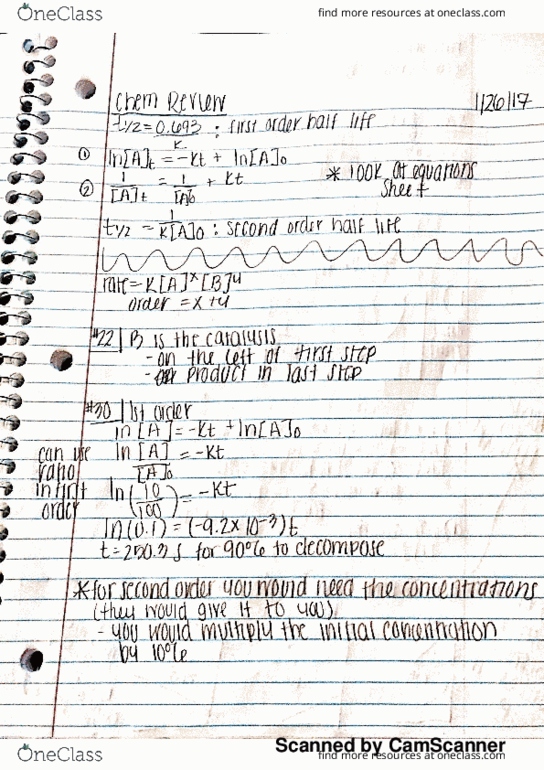 OneClass
find more resources at oneclass.com
Chem Review 1/26/17
t1/2 = 0.693/K : first order half life
① ln[A]t = -Kt + ln[A]0
② 1/[A]t = 1/[A]0 + Kt
* look at equations sheet
t1/2 = 1/K[A]0 : second order half life
rate = K[A]^x [B]^y
order = x + y
#22 | B is the catalysis
- on the left of first step
- product in last step
#30 | 1st order
ln[A] = -Kt + ln[A]0
ln [A]/[A]0 = -Kt
can use
ratio
in first
order
ln(10/100) = -Kt
ln(0.1) = (-9.2x10^-3)t
t = 250.3 s for 90% to decompose
* for second order you would need the concentrations
(they would give it to you)
- you would multiply the initial concentration
by 10%
Scanned by CamScanner
OneClass
find more resources at oneclass.com